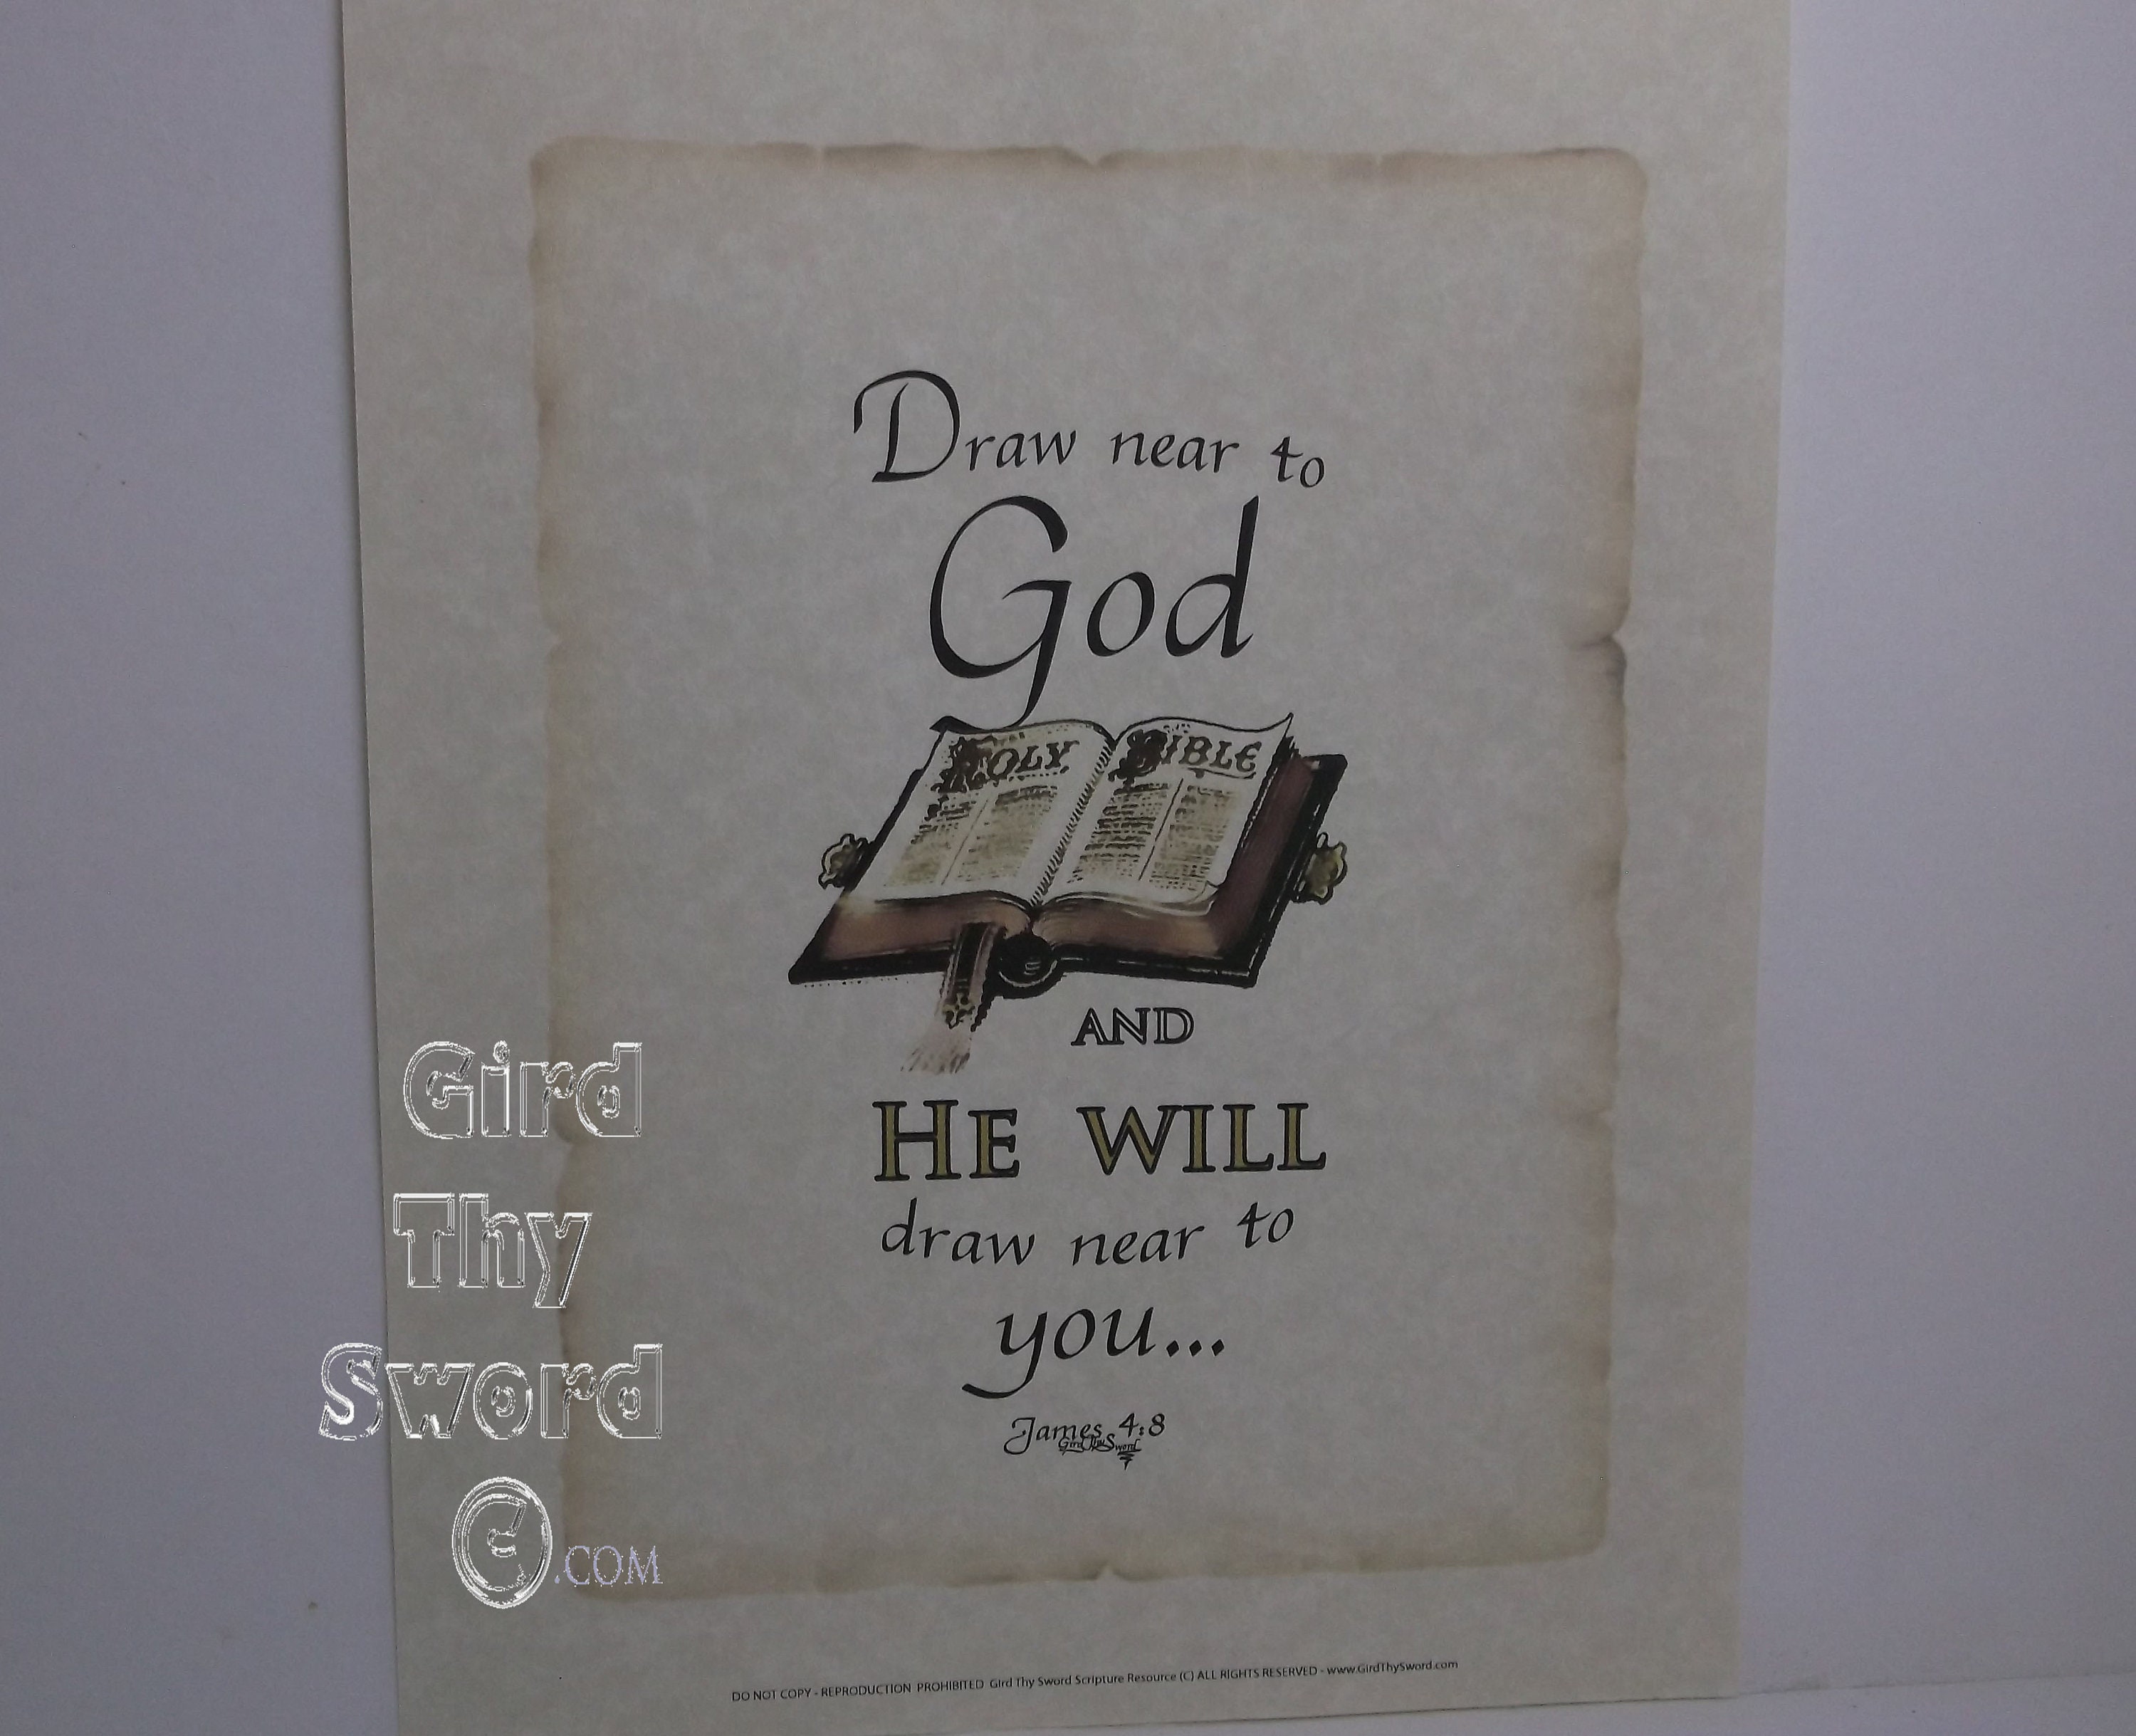 Draw near to
God
HOLY BIBLE
AND
HE WILL
draw near to
you...
James 4:8
Gird Thy Sword
Gird
Thy
Sword
G.COM
DO NOT COPY - REPRODUCTION PROHIBITED Gird Thy Sword Scripture Resource (C) ALL RIGHTS RESERVED - www.GirdThySword.com